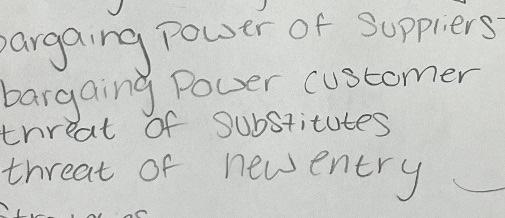 bargaing Power of Suppliers
bargaing Power customer
threat of Substitutes
threat of new entry